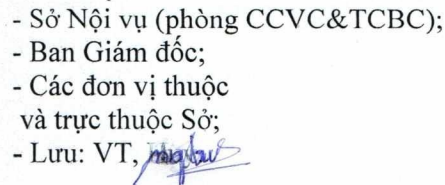 - Sở Nội vụ (phòng CCVC&TCBC);
- Ban Giám đốc;
- Các đơn vị thuộc
và trực thuộc Sở;
- Lưu: VT,